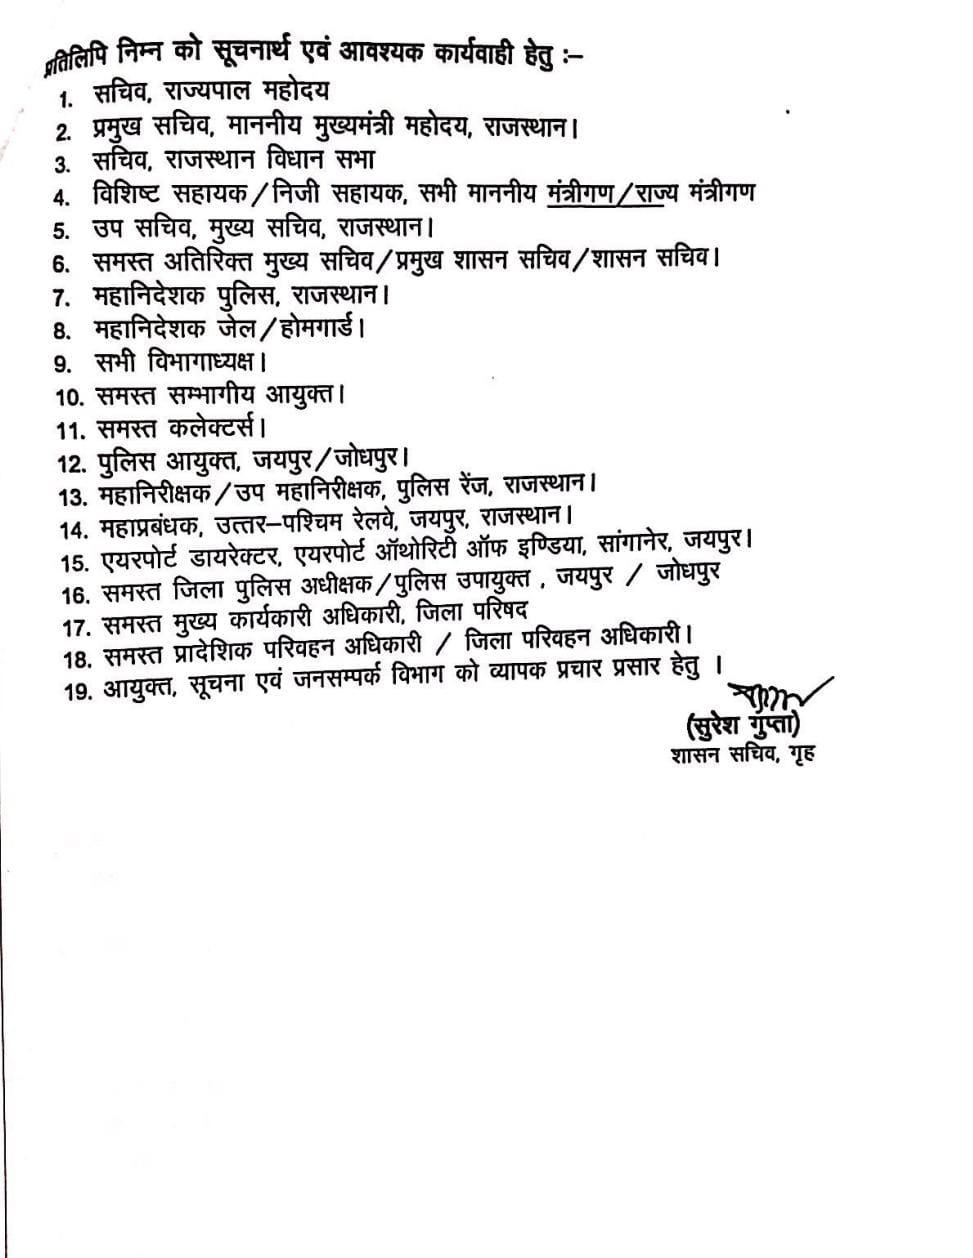 प्रतिलिपि निम्न को सूचनार्थ एवं आवश्यक कार्यवाही हेतु :–
1. सचिव, राज्यपाल महोदय
2. प्रमुख सचिव, माननीय मुख्यमंत्री महोदय, राजस्थान।
3. सचिव, राजस्थान विधान सभा
4. विशिष्ट सहायक/निजी सहायक, सभी माननीय मंत्रीगण/राज्य मंत्रीगण
5. उप सचिव, मुख्य सचिव, राजस्थान।
6. समस्त अतिरिक्त मुख्य सचिव/प्रमुख शासन सचिव/शासन सचिव।
7. महानिदेशक पुलिस, राजस्थान।
8. महानिदेशक जेल/होमगार्ड।
9. सभी विभागाध्यक्ष।
10. समस्त सम्भागीय आयुक्त।
11. समस्त कलेक्टर्स।
12. पुलिस आयुक्त, जयपुर/जोधपुर।
13. महानिरीक्षक/उप महानिरीक्षक, पुलिस रेंज, राजस्थान।
14. महाप्रबंधक, उत्तर–पश्चिम रेलवे, जयपुर, राजस्थान।
15. एयरपोर्ट डायरेक्टर, एयरपोर्ट ऑथोरिटी ऑफ इण्डिया, सांगानेर, जयपुर।
16. समस्त जिला पुलिस अधीक्षक/पुलिस उपायुक्त , जयपुर / जोधपुर
17. समस्त मुख्य कार्यकारी अधिकारी, जिला परिषद
18. समस्त प्रादेशिक परिवहन अधिकारी / जिला परिवहन अधिकारी।
19. आयुक्त, सूचना एवं जनसम्पर्क विभाग को व्यापक प्रचार प्रसार हेतु ।
(सुरेश गुप्ता)
शासन सचिव, गृह